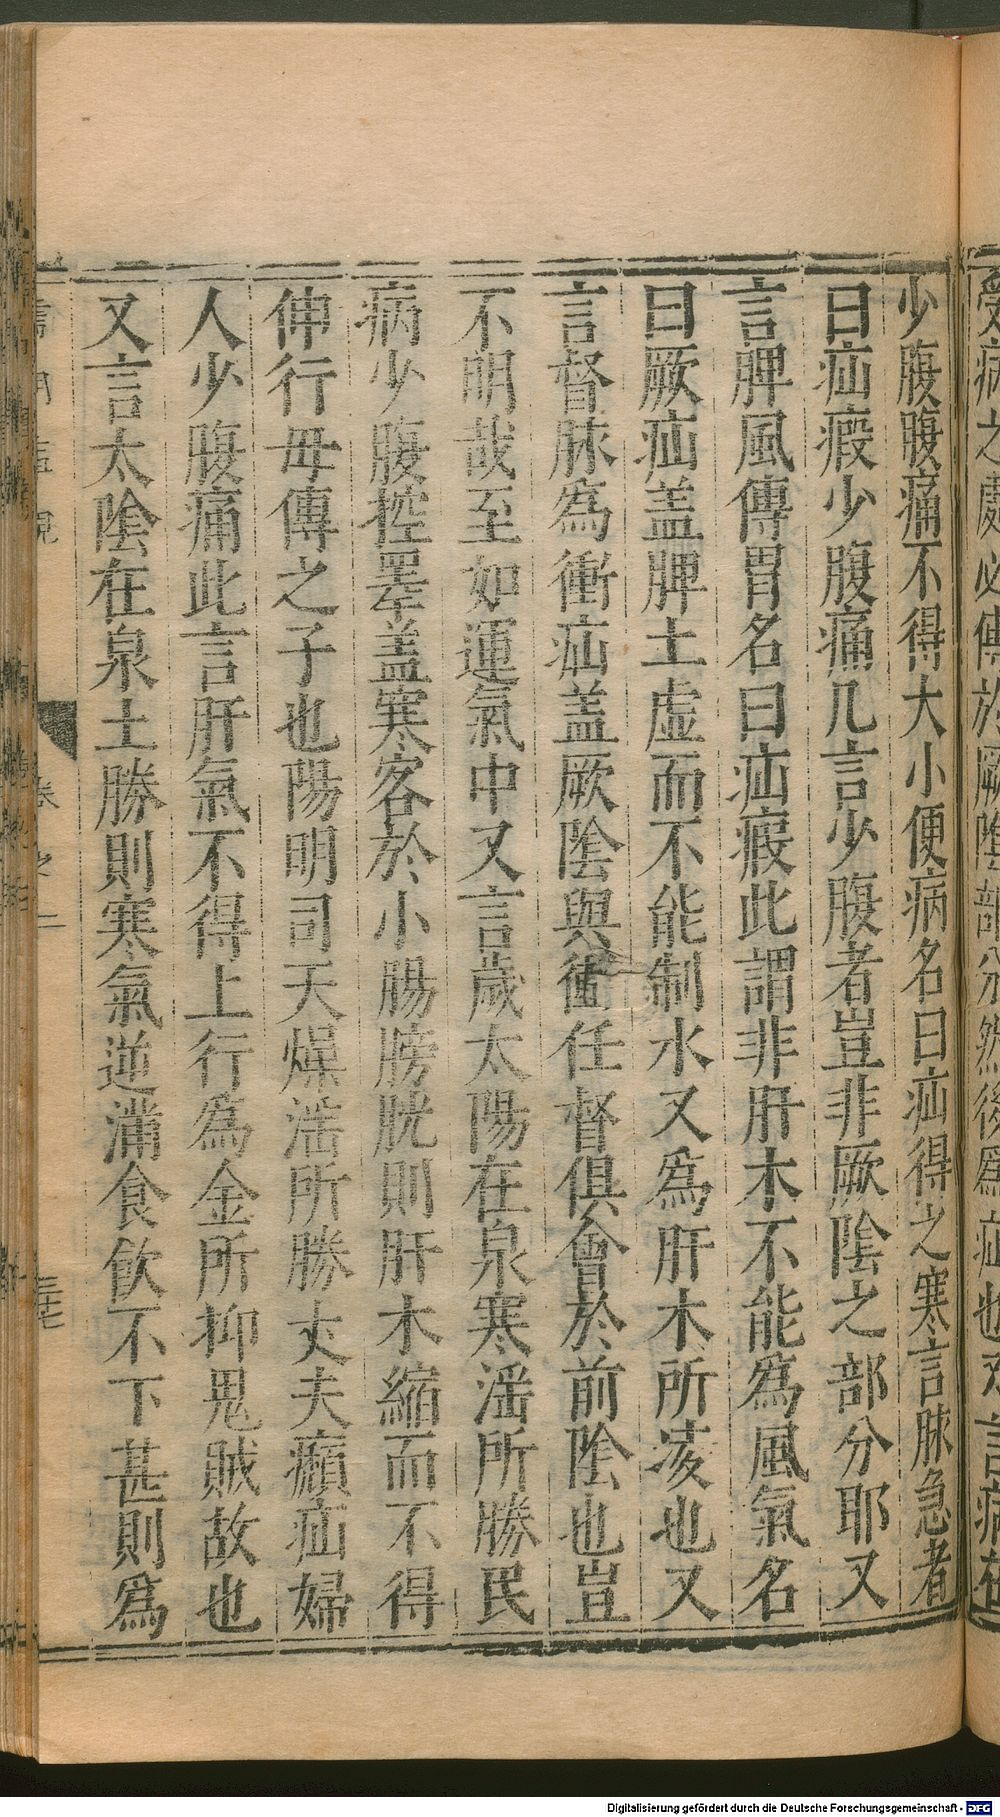 受病之處必傳於厥陰部分然後爲疝也又言病在
少腹腹痛不得大小便病名曰疝得之寒言脉急者
曰疝瘕少腹痛几言少腹者豈非厥陰之部分耶又
言脾風傳胃名曰疝瘕此謂非肝木不能為風氣名
曰厥疝盖脾土虚而不能制水又為肝木所凌也又
言督脉為衝疝盖厥陰與衝任督俱會於前陰也豈
不明哉至如運氣中又言歲太陽在泉寒滛所勝民
病少腹控睪盖寒客於小腸膀胱則肝木縮而不得
伸行母傳之子也陽明司天燥滛所勝丈夫㿗疝婦
人少腹痛此言肝氣不得上行為金所抑鬼賊故也
又言太陰在泉土勝則寒氣逆滿食飲不下甚則為
卷之二
三十七
Digitalisierung gefördert durch die Deutsche Forschungsgemeinschaft - DFG